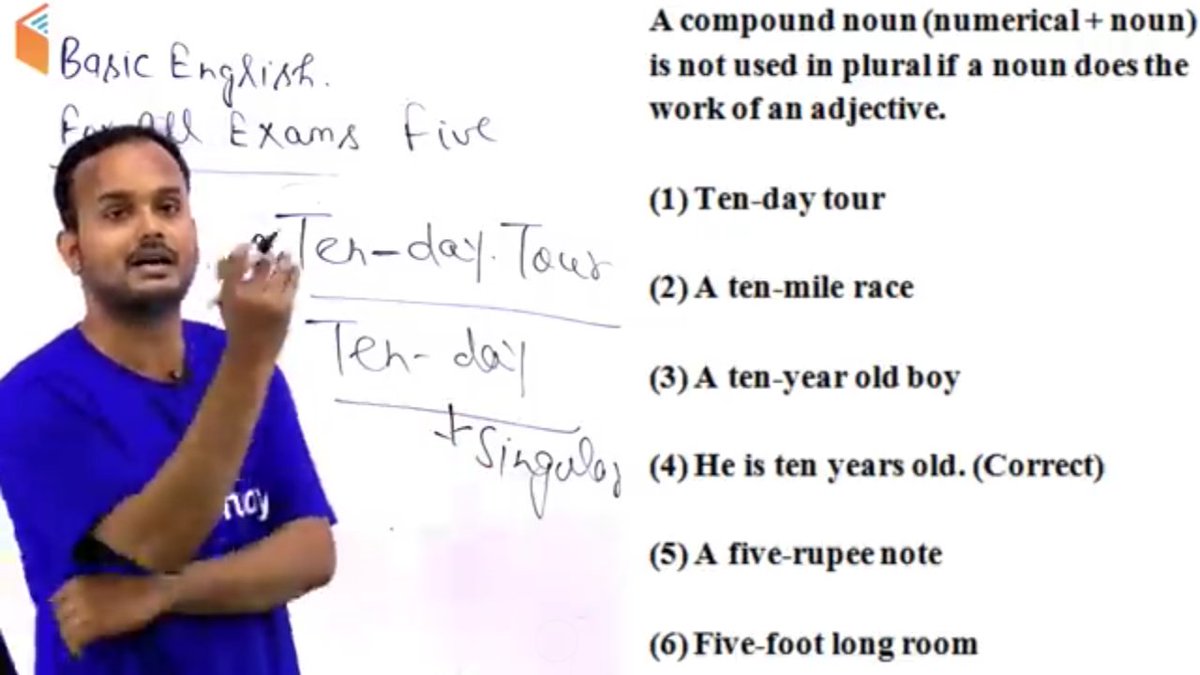 Basic English.
For All Exams Five
Ten-day. Tour
Ten- day
+ Singular
nay
A compound noun (numerical + noun)
is not used in plural if a noun does the
work of an adjective.
(1) Ten-day tour
(2) A ten-mile race
(3) A ten-year old boy
(4) He is ten years old. (Correct)
(5) A five-rupee note
(6) Five-foot long room